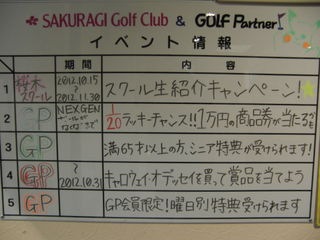 SAKURAGI Golf Club & GOLF Partner
イベント情報
期間 内容
1 桜木スクール 2012.10.15 〜 2012.11.30 スクール生紹介キャンペーン!
2 GP NEXGEN 1/20ラッキーチャンス!!1万円の商品券が当たる
3 GP 満65才以上の方、シニア特典が受けられます!
4 GP 〜2012.10.31 キャロウェイ・オデッセイを買って賞品を当てよう
5 GP GP会員限定!曜日別特典受けられます